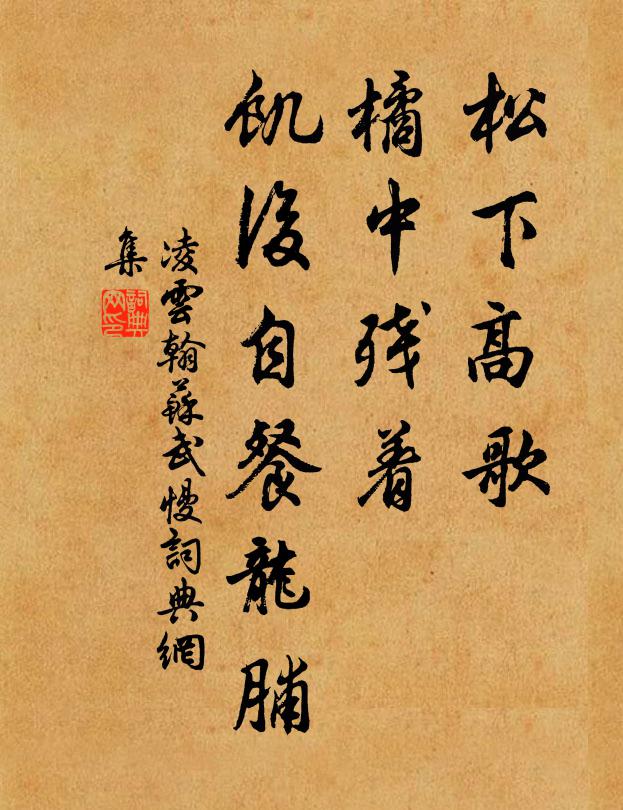 松下高歌
橘中残着
飢後自餐龍脯
凌雲翰蘇武慢詞典網
集
詞典
网印